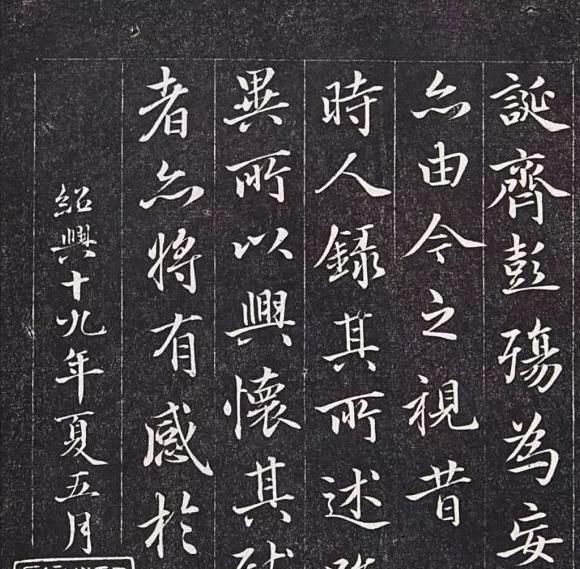 誕齊彭殤為妄
亦由今之視昔
時人錄其所述
異所以興懷其
者亦將有感於
紹興十九年夏五月